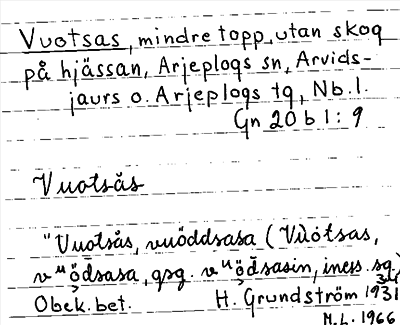 Vuotsas, mindre topp utan skog
på hjässan, Arjeplogs sn, Arvids-
jaurs o. Arjeplogs tg, Nb. l.
Gn 20 b 1: 9
Vuotsås
"Vuotsås, vuöddsasa (Vùotsas,
gsg. iness. sg.)
Obek. bet. H. Grundström 1931
M.L. 1966